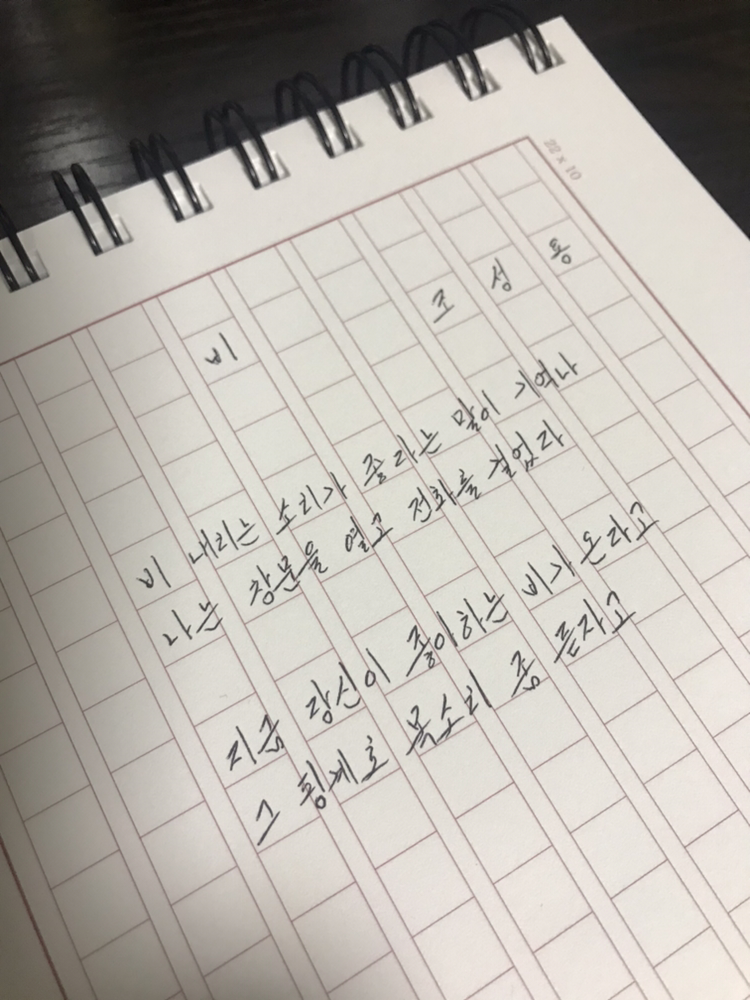 22 x 10
비 조성용
비 내리는 소리가 좋다는 말이 기억나
나는 창문을 열고 전화를 걸었다
지금 당신이 좋아하는 비가 온다고
그 핑계로 목소리 좀 듣자고